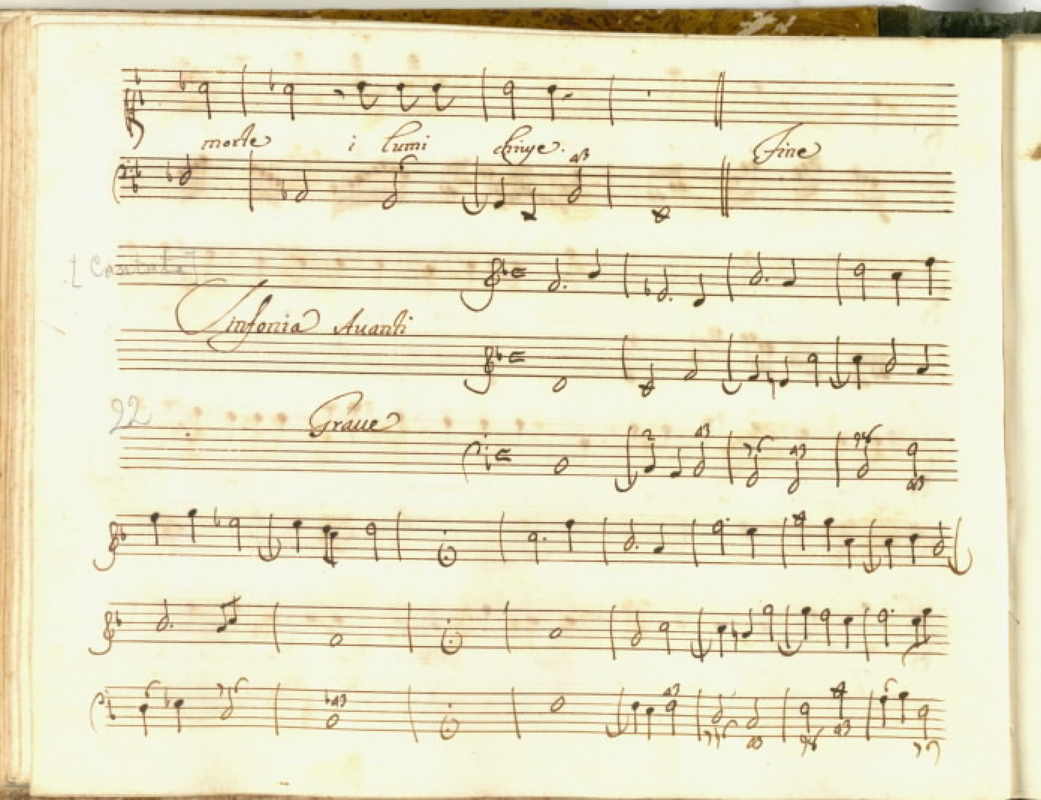 morte i lumi chiuse. Fine
[Cantata]
Sinfonia Avanti
22
Graue